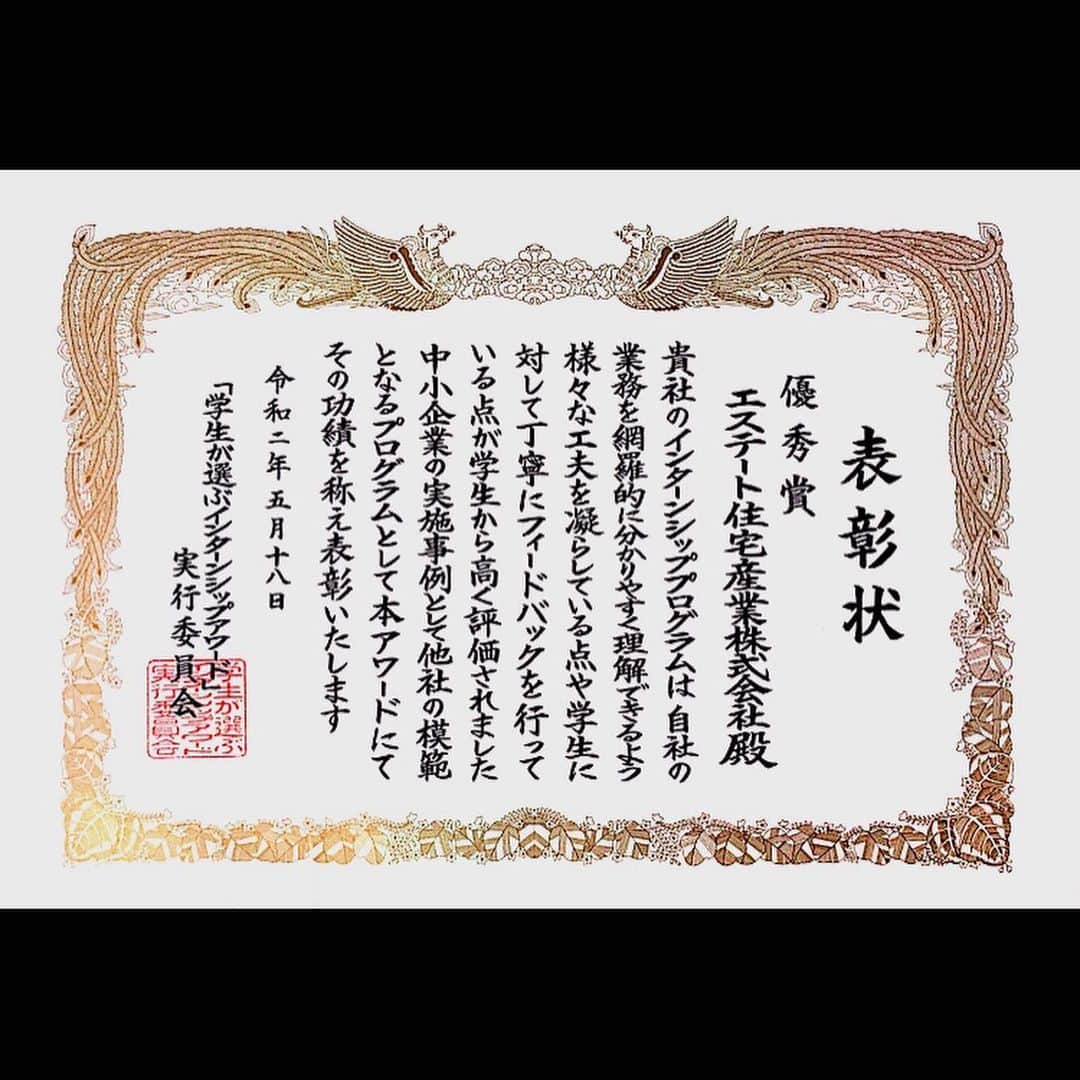 表彰状
優秀賞
エステート住宅産業株式会社殿
貴社のインターンシッププログラムは自社の
業務を網羅的に分かりやすく理解できるよう
様々な工夫を凝らしている点や学生に
対して丁寧にフィードバックを行って
いる点が学生から高く評価されました
中小企業の実施事例として他社の模範
となるプログラムとして本アワードにて
その功績を称え表彰いたします
令和二年五月十八日
「学生が選ぶインターンシップアワード」
実行委員会
学生が選ぶ
インターンシップアワード
実行委員会